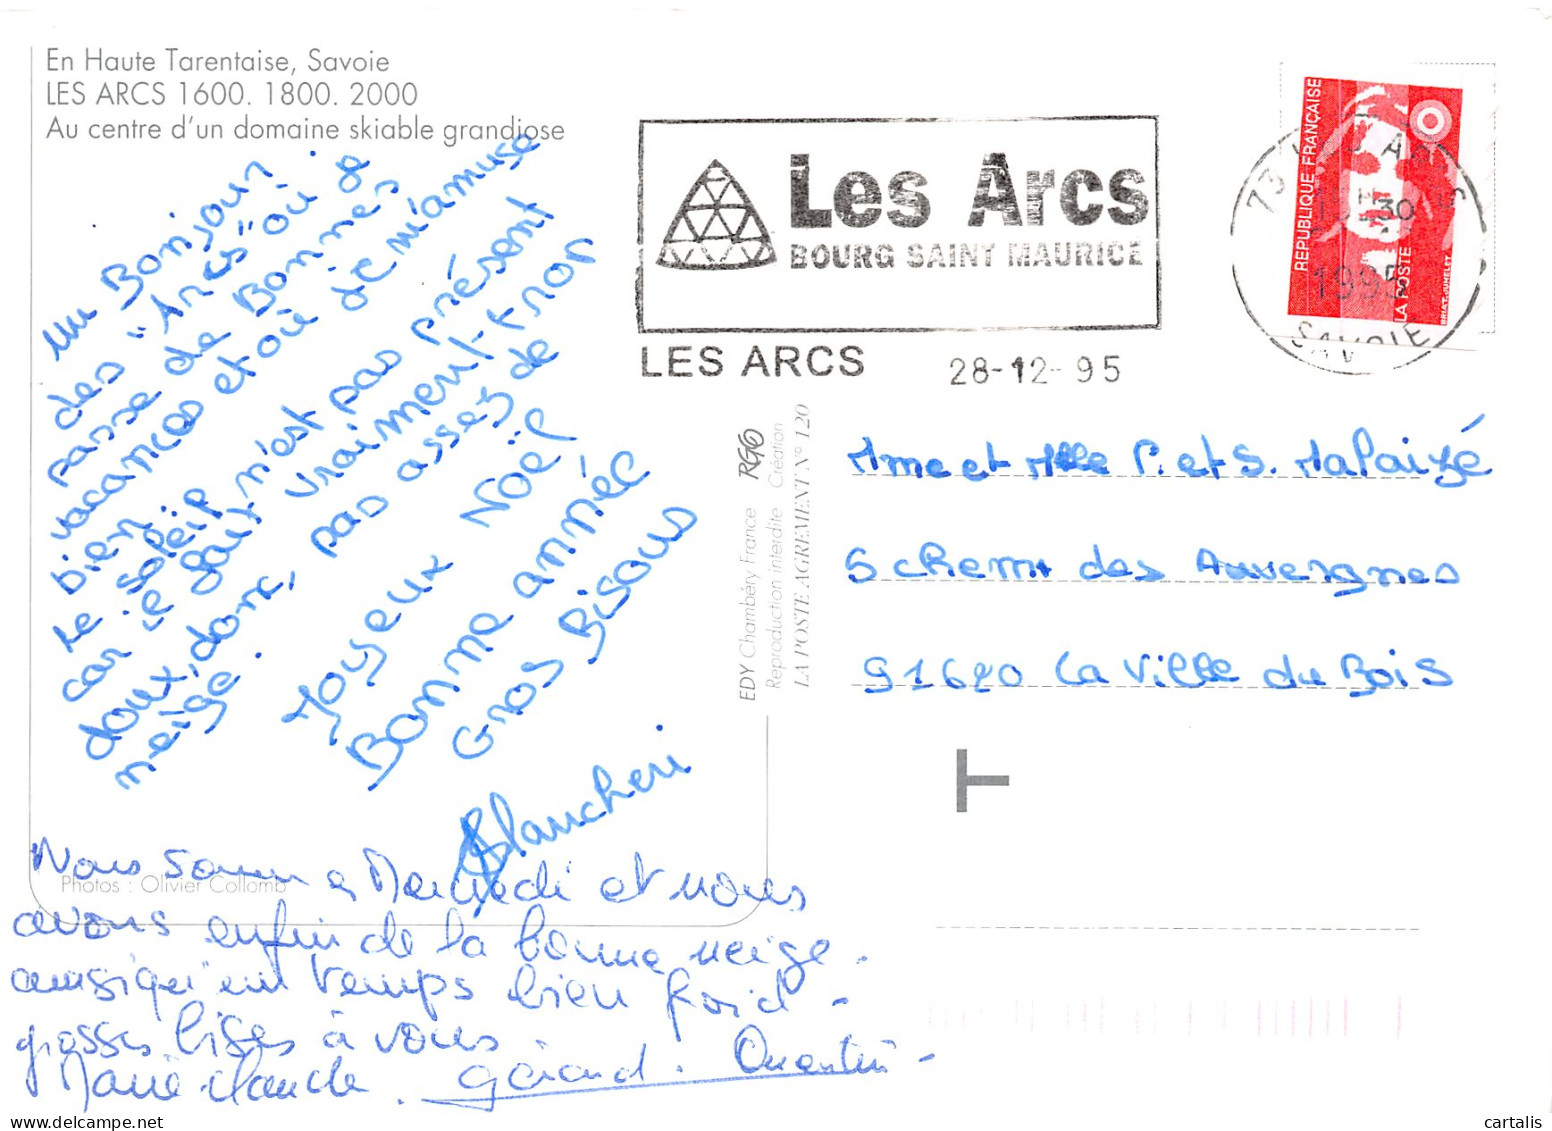 En Haute Tarentaise, Savoie
LES ARCS 1600. 1800. 2000
Au centre d'un domaine skiable grandiose
un Bonjour
des "Arcs" où je
passe de Bonnes
vacances et où je m'amuse
bien.
Le soleil n'est pas présent
car il fait vraiment trop
doux, donc, pas assez de
neige.
Joyeux Noël
Bonne année
Gros Bisous
Blancheri
Nous somm Mercredi et nous
avons enfin de la bonne neige.
ainsi qu'un temps bien froid -
grosses bises à vous.
Marie claude. Gérard. Quentin -
Photos : Olivier Collomb
EDY Chambéry France
Reproduction interdite Création
LA POSTE AGREMENT N° 120
Les Arcs
BOURG SAINT MAURICE
LES ARCS 28-12-95
REPUBLIQUE FRANÇAISE
LA POSTE
BRIAT-JUMELET
73 ARCS
30
1995
SAVOIE
Mme et Mlle P. et S. Malaizé
5 chemi des Auvergnes
91620 La Ville du Bois
cartalis